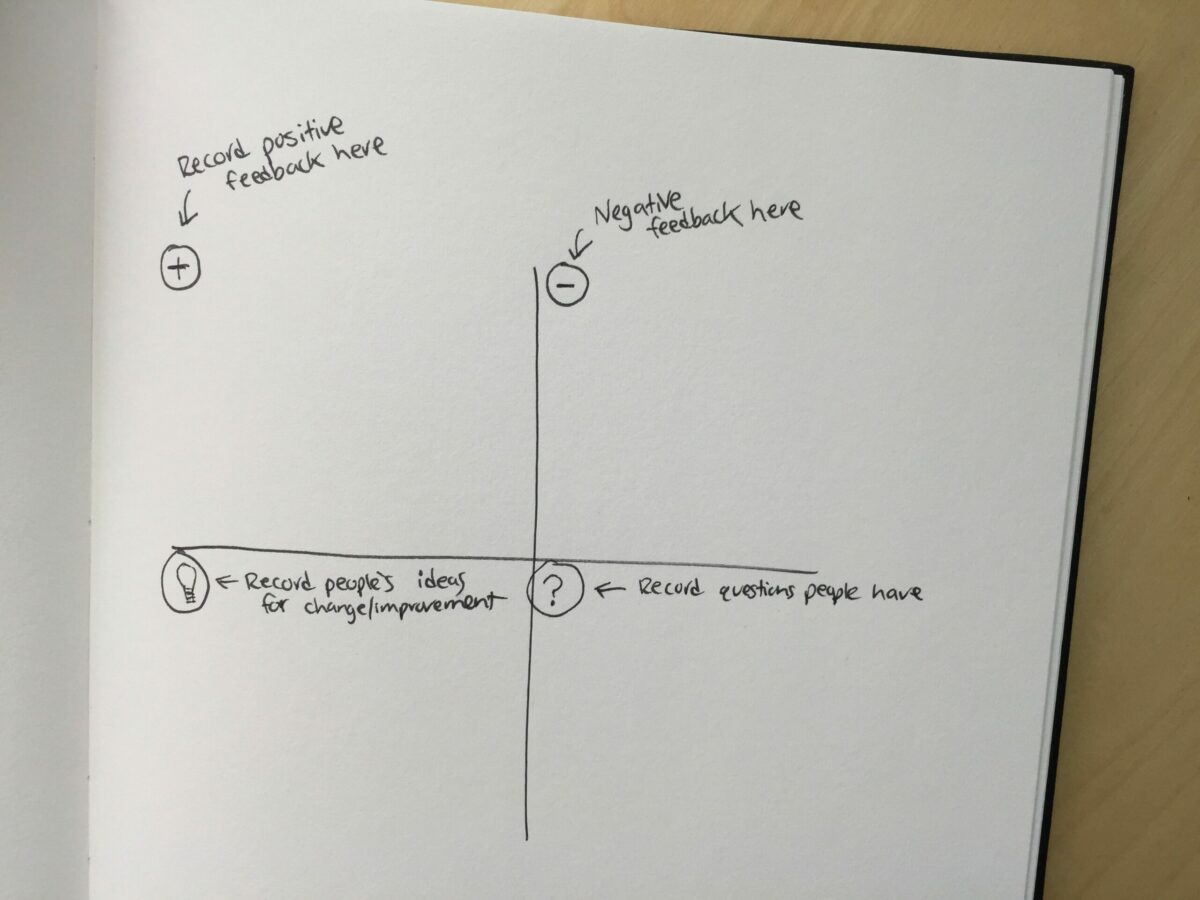 Record positive
feedback here
+
Negative
feedback here
-
← Record people's ideas
for change/improvement
?
← Record questions people have